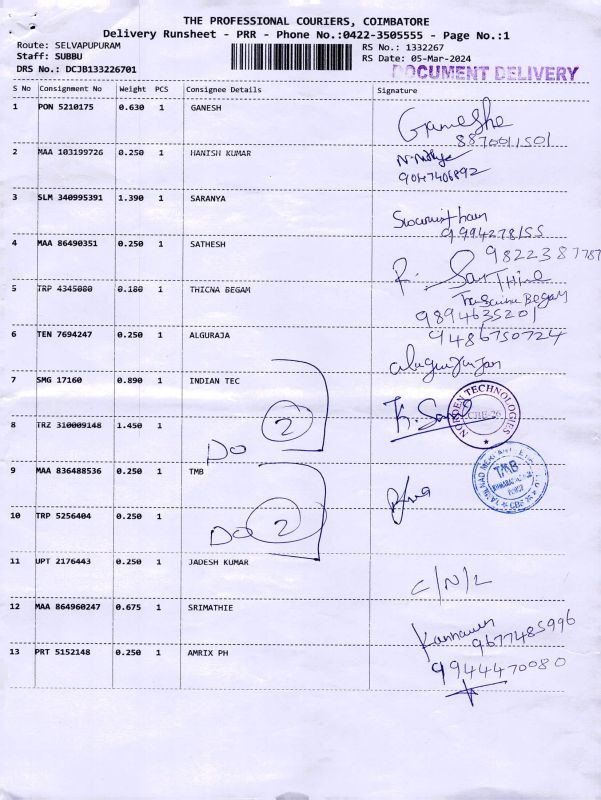 THE PROFESSIONAL COURIERS, COIMBATORE
Delivery Runsheet - PRR - Phone No.:0422-3505555 - Page No.:1
Route: SELVAPUPURAM RS No.: 1332267
Staff: SUBBU RS Date: 05-Mar-2024
DRS No.: DCJB133226701 DOCUMENT DELIVERY
S No Consignment No Weight PCS Consignee Details Signature
1 PON 5210175 0.630 1 GANESH Ganeshe
8870011501
2 MAA 103199726 0.250 1 HANISH KUMAR
9047406892
3 SLM 340995391 1.390 1 SARANYA
9994278155
4 MAA 86490351 0.250 1 SATHESH 9822387787
5 TRP 4345080 0.180 1 THICNA BEGAM Begam
9894635201
6 TEN 7694247 0.250 1 ALGURAJA 9486750724
7 SMG 17160 0.890 1 INDIAN TEC
NORDEN TECHNOLOGIES CBE-26
8 TRZ 310009148 1.450 1 Do 2
9 MAA 836488536 0.250 1 TMB
TMB
10 TRP 5256404 0.250 1 Do 2
11 UPT 2176443 0.250 1 JADESH KUMAR C/N/L
12 MAA 864960247 0.675 1 SRIMATHIE Kannan
9677485996
13 PRT 5152148 0.250 1 AMRIX PH 9944470080